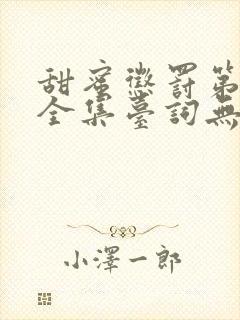 甜蜜懲罰第
全集臺詞無
小澤一郎